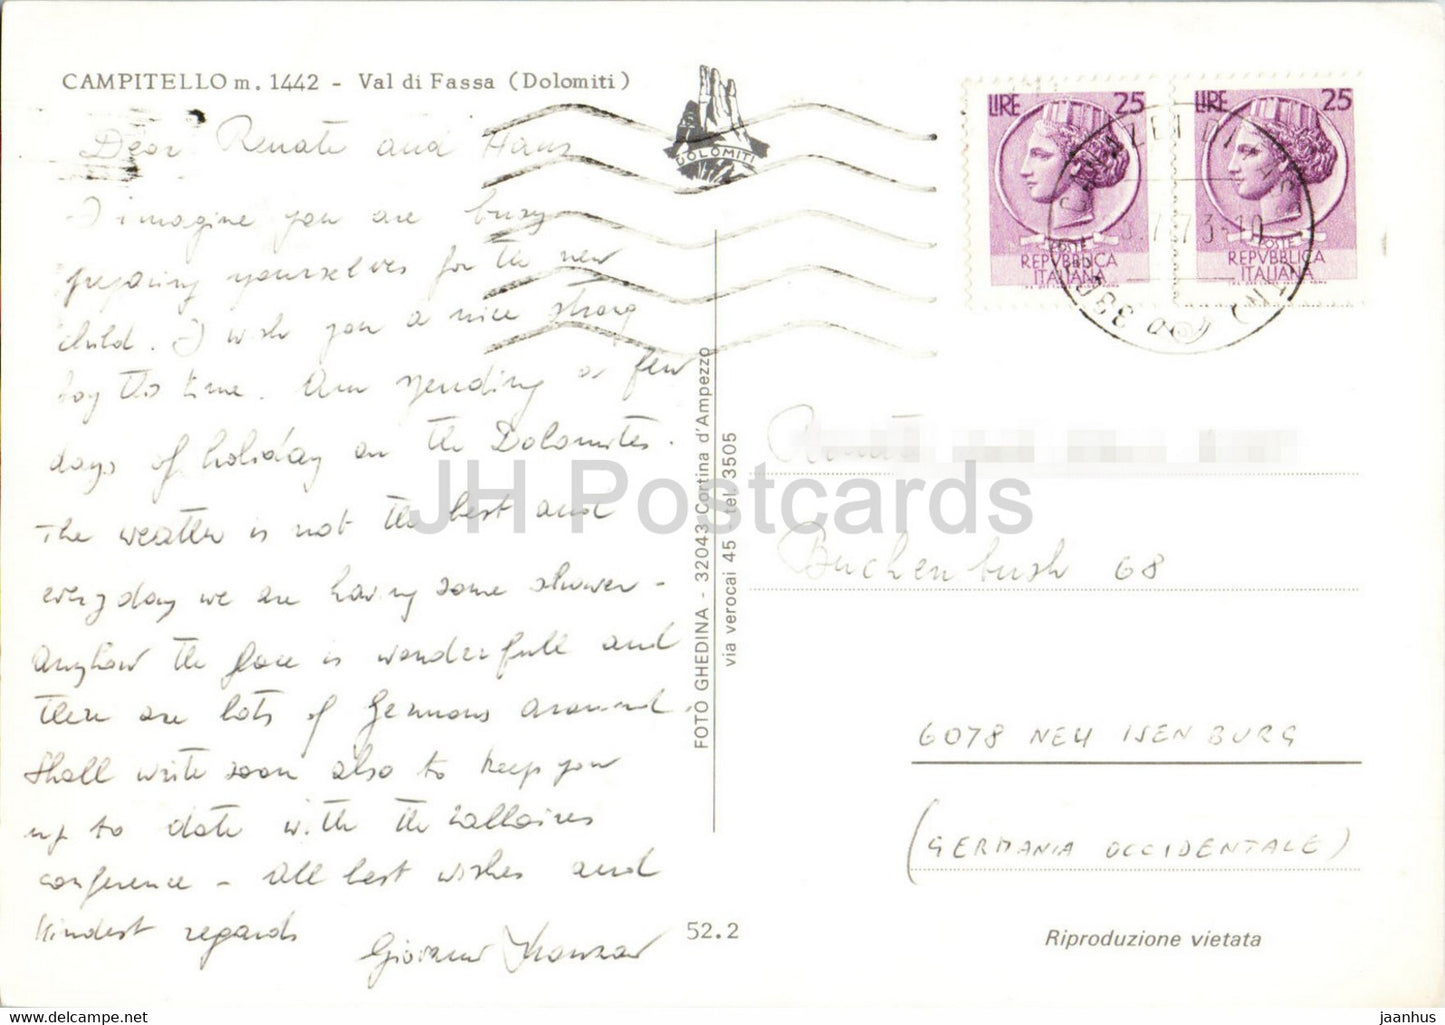 CAMPITELLO m. 1442 - Val di Fassa (Dolomiti)
DOLOMITI
Dear Renate and Hans
I imagine you are busy
preparing yourselves for the new
child. I wish you a nice strong
boy this time. Am spending a few
days of holiday on the Dolomites.
The weather is not the best and
everyday we are having some shower -
Anyhow the place is wonderfull and
there are lots of Germans around.
Shall write soon also to keep you
up to date with the
conference - All best wishes and
kindest regards
Giovanni
52.2
FOTO GHEDINA - 32043 Cortina d'Ampezzo
via verocai 45 tel 3505
JH Postcards
LIRE 25
POSTE
REPVBBLICA
ITALIANA
LIRE 25
POSTE
REPVBBLICA
ITALIANA
7 73-10
Renate
Buchenbush 68
6078 NEU ISENBURG
(GERMANIA OCCIDENTALE)
Riproduzione vietata
jaanhus